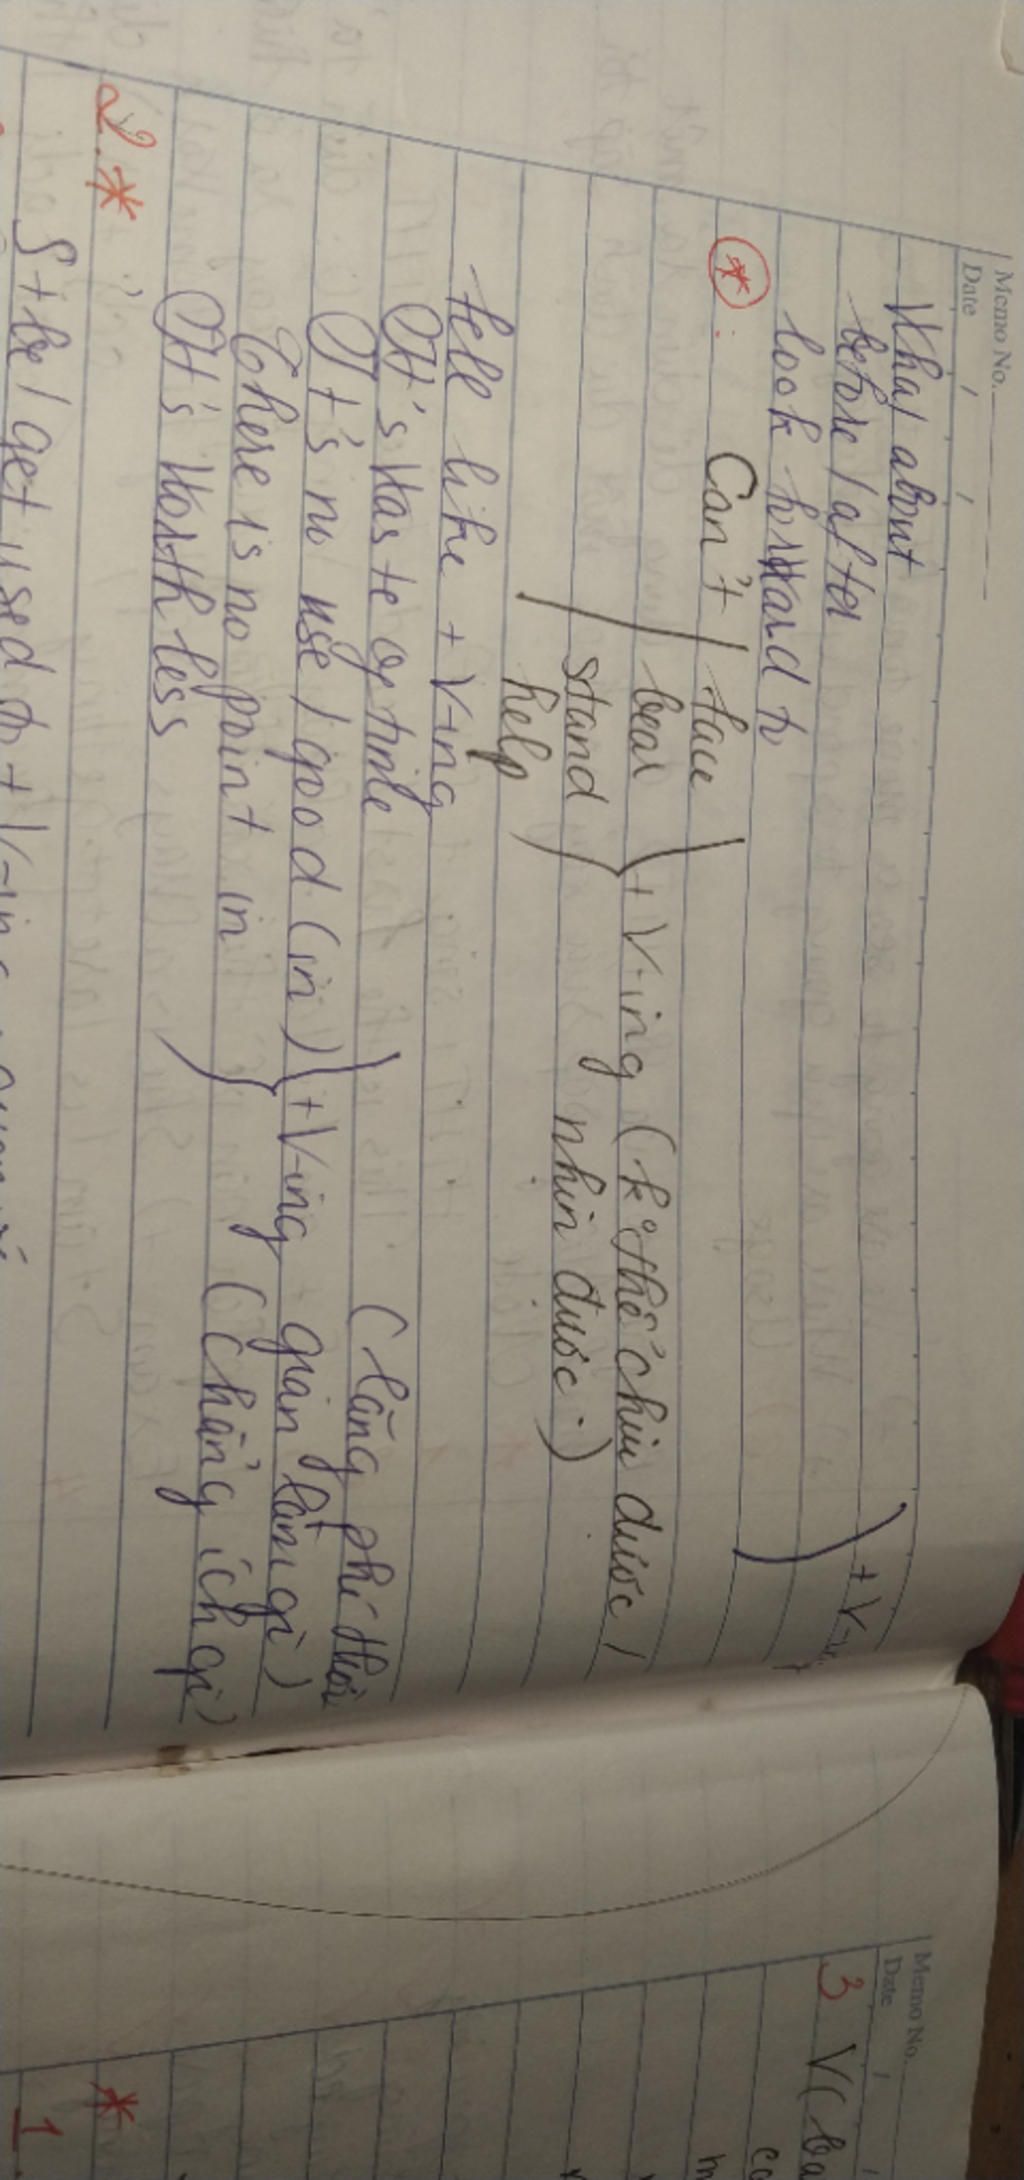 Memo No.
Date / /
What about
before / after + V-ing
look forward to
*: Can't face
bear + V-ing (k° thể chịu được /
stand nhịn được.)
help
feel like + V-ing
It's waste of time (lãng phí thời
It's no use / good (in) + V-ing gian làm gì)
There is no point in (chẳng ích gì)
It's worthless
2. *
S + be / get used to + V-ing
Memo No.
Date /
3 V(ba
*
1